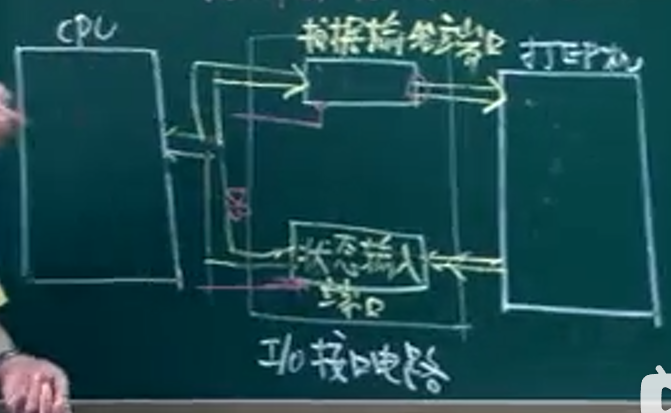 CPU
数据输出端口
打印机
状态输入
端口
I/O接口电路